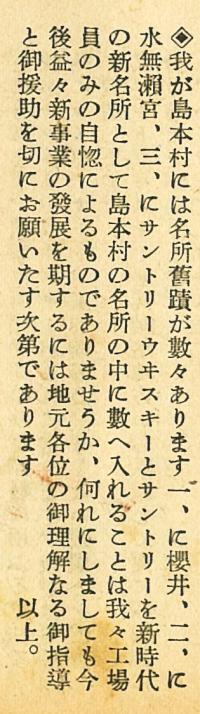 ◈我が島本村には名所舊蹟が數々あります一、に櫻井、二、に
水無瀨宮、三、にサントリーウヰスキーとサントリーを新時代
の新名所として島本村の名所の中に數へ入れることは我々工場
員のみの自惚によるものでありませうか、何れにしましても今
後益々新事業の發展を期するには地元各位の御理解なる御指導
と御援助を切にお願いたす次第であります　以上。